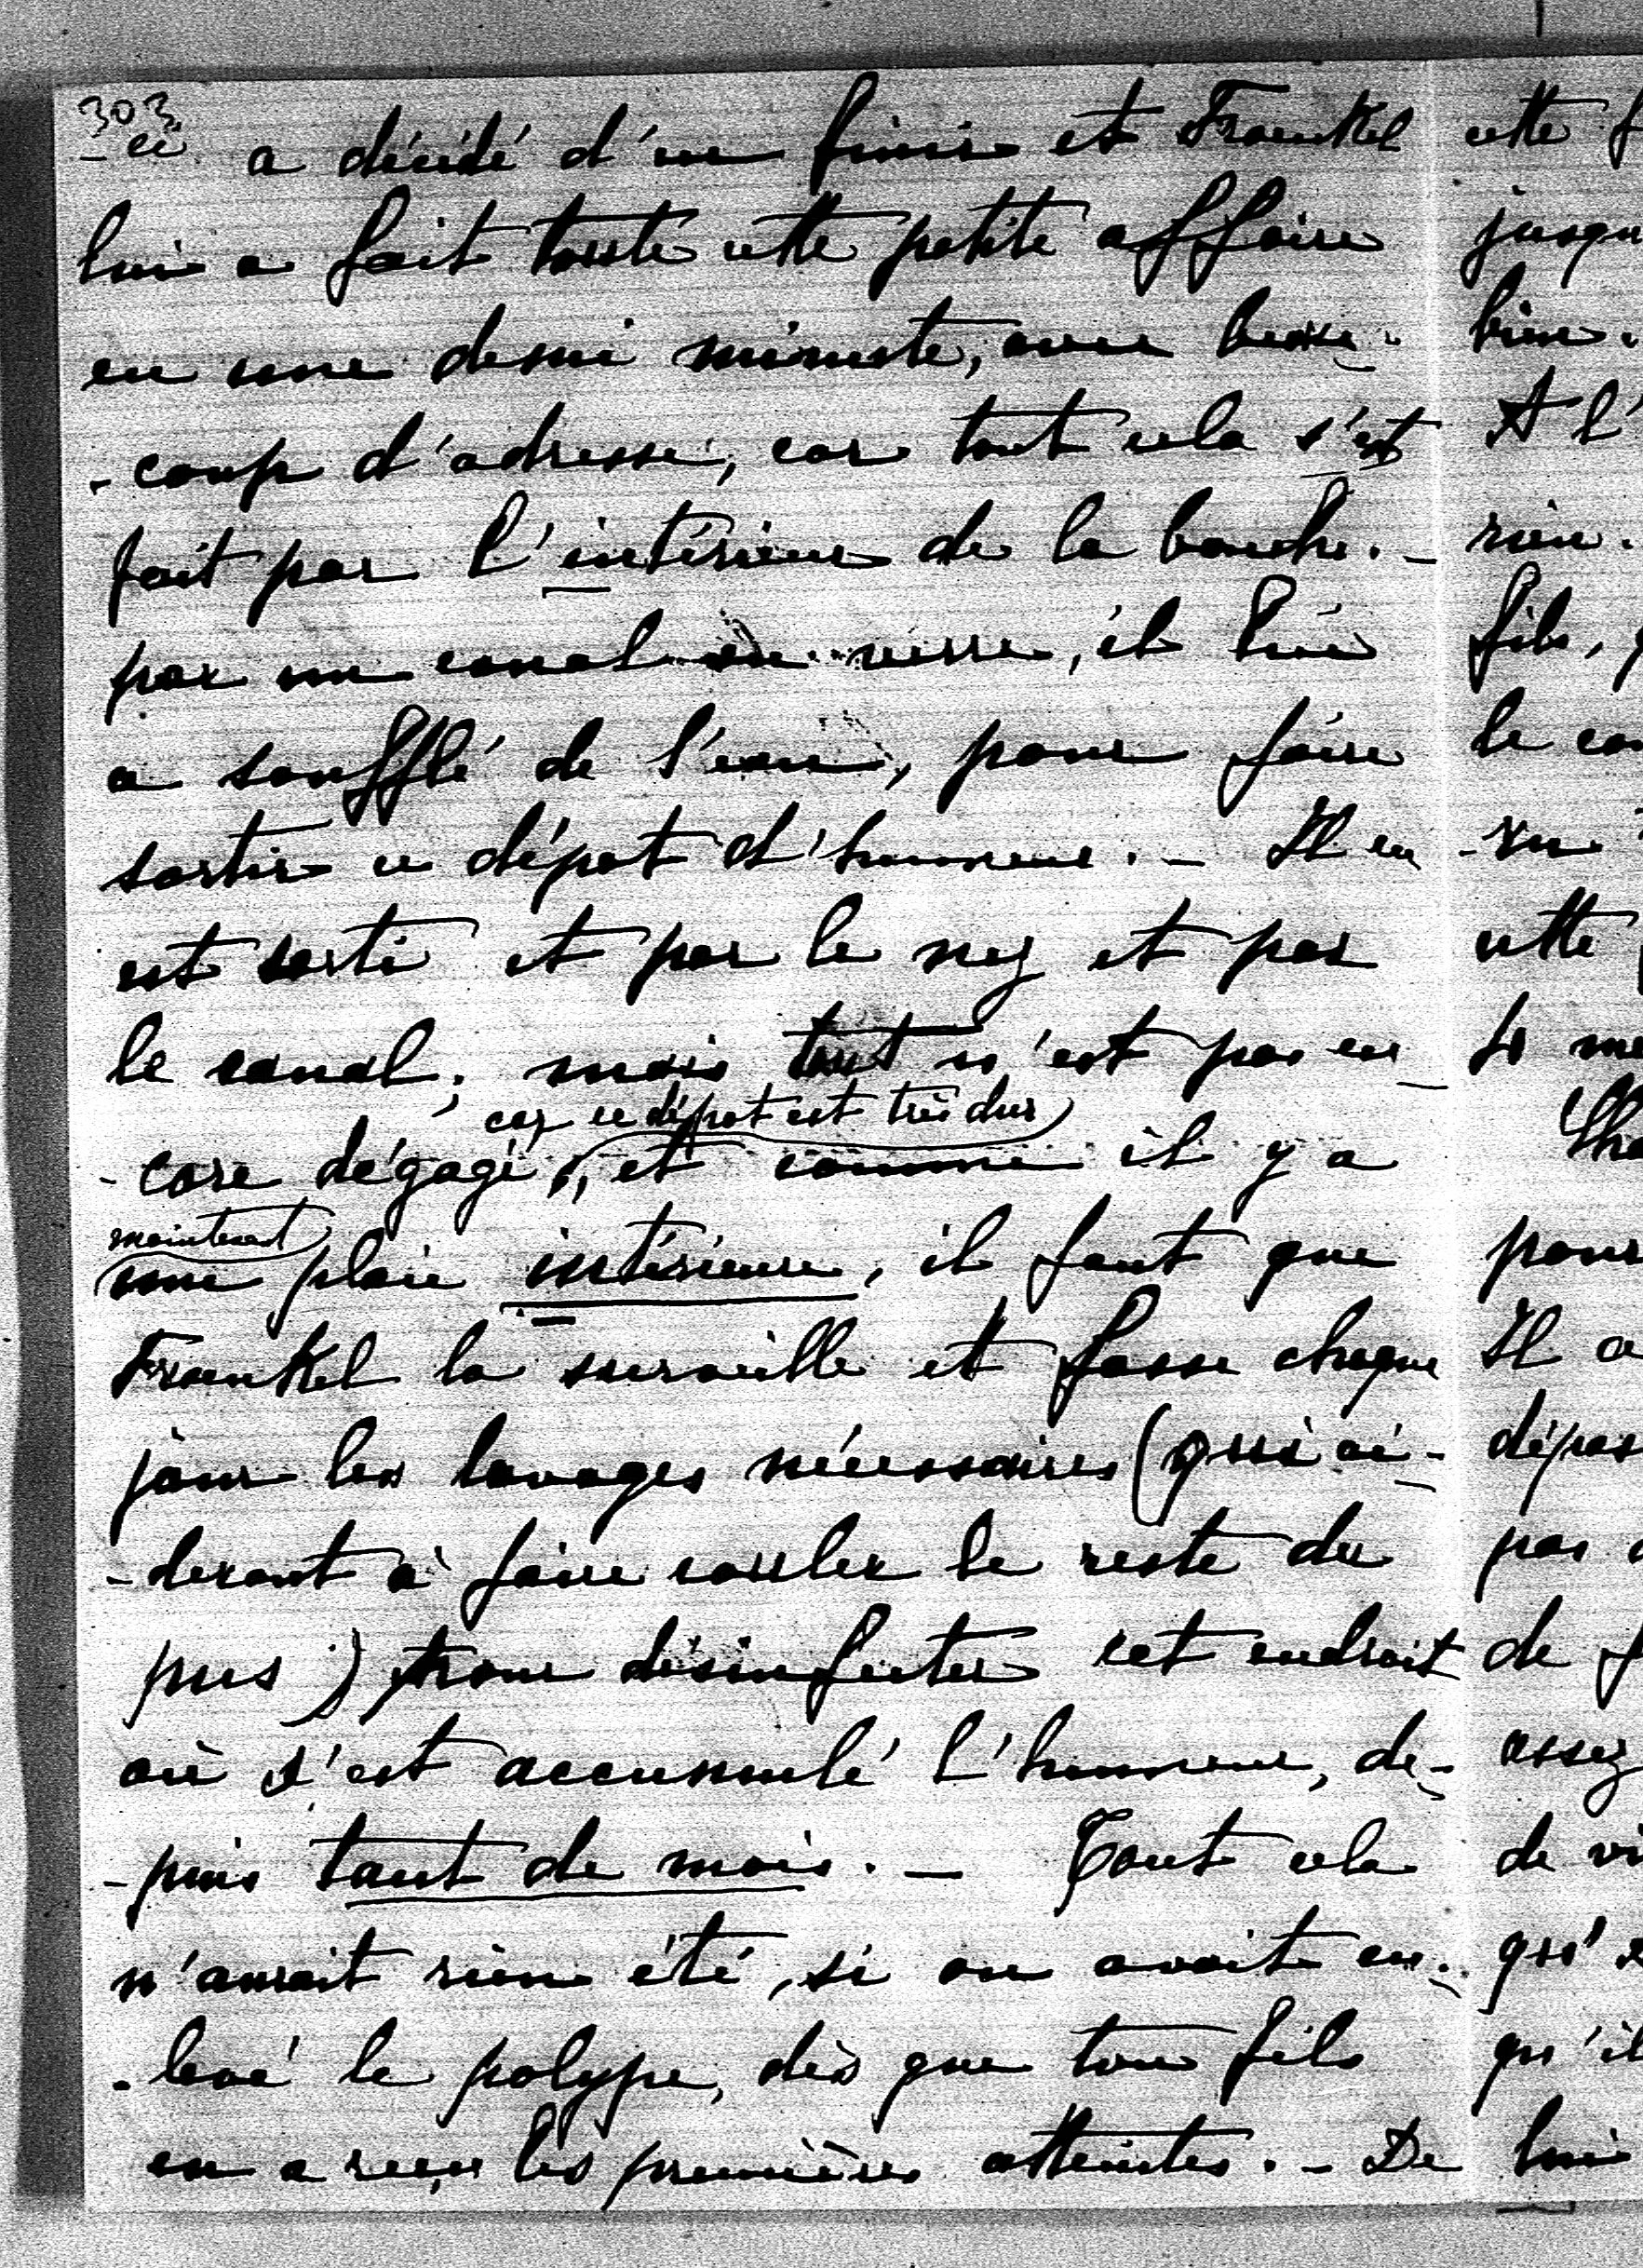 303
-ci a décidé d'en finir et Fraenkel
lui a fait toute cette petite affaire
en une demi minute, avec beau-
-coup d'adresse, car tout cela s'est
fait par l'intérieur de la bouche. -
par un canal en verre, il lui
a soufflé de l'eau, pour faire
sortir ce dépot d'humeur. - Il en
est sorti et par le nez et par
le canal; mais tout n'est pas en-
car ce dépot est très dur
-core dégagé, et comme il y a
maintenant
une plaie intérieure, il faut que
Fraenkel la surveille et fasse chaque
jour les lavages nécessaires (qui ai-
-deront à faire couler le reste du
pus) pour désinfecter cet endroit
où s'est accumulé l'humeur, de-
-puis tant de mois. - Tout cela
n'aurait rien été, si on avait en-
-levé le polype, dès que ton fils
en a reçu les premières atteintes. - De
cette f
jusqu
bien.
A l'
rien.
fils,
le co
-ru
cette
pour
Il a
dépas
pas
de f
assez
de vi
qu'
qu'il
lui